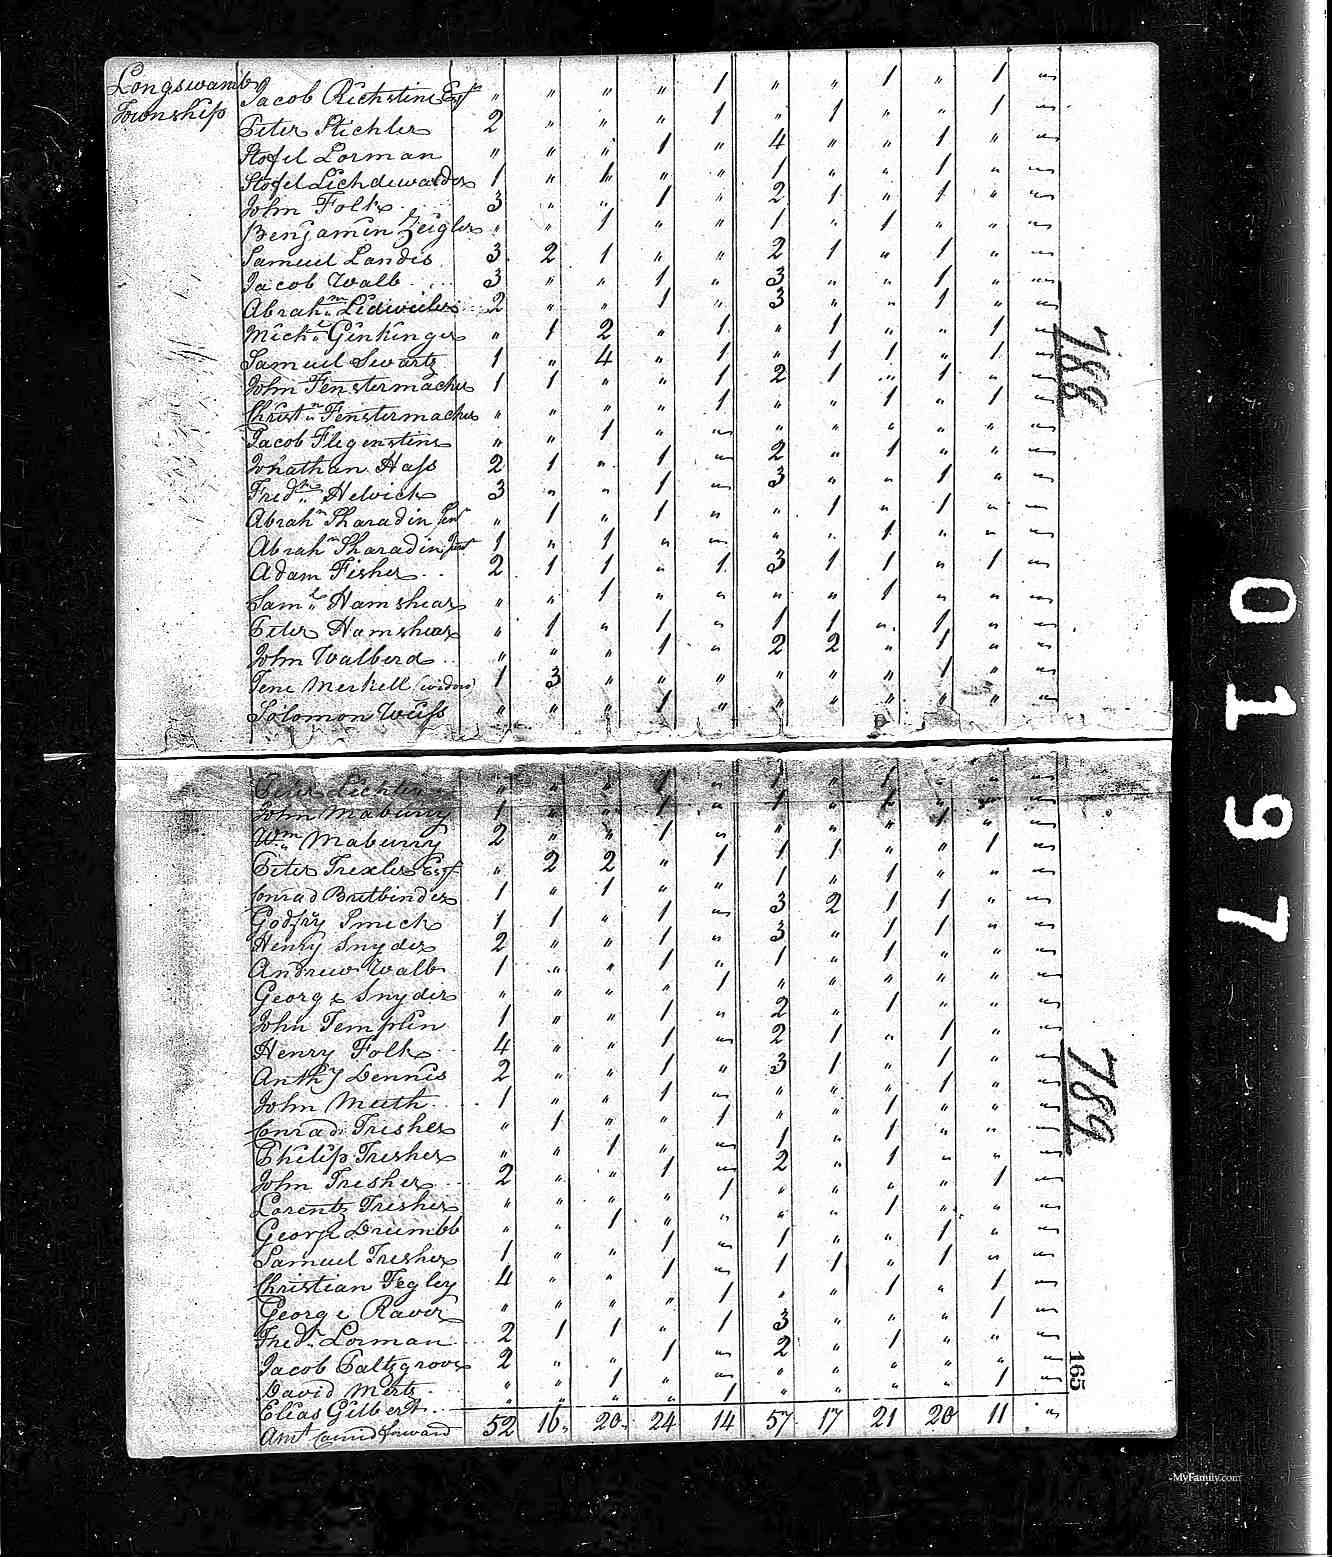 Longswamb Jacob Richstine Esqr " " " " 1 " " 1 " 1 "
Township
Peter Stichler 2 " " " 1 " 1 " " 1 "
Stofel Lorman " " " 1 " 4 " " 1 " "
Stofel Lichdewarder 1 " 1 " " 1 " " 1 " "
John Folk 3 " " 1 " 2 1 " 1 " "
Benjamin Zeigler " " 1 " " 1 " 1 " " "
Samuel Landis 3 2 1 " " 2 1 " 1 " "
Jacob Walb 3 " " 1 " 3 " " 1 " "
Abrahm 2 " " 1 " 3 " " 1 " "
Michl Ginkinger " 1 2 " 1 " 1 " " 1 "
Samuel Swartz 1 " 4 " 1 " 1 1 " 1 "
John Fenstermacher 1 1 " " 1 2 1 " 1 " "
Christn Fenstermacher " " " " 1 " " 1 " 1 "
Jacob Flegenstine " " 1 " " " " " " " "
Jonathan Hass 2 1 " 1 " 2 " 1 " " "
Fredk Helwick 3 " " 1 " 3 " " 1 " "
Abrahm Sharadin Senr " 1 " 1 " " 1 " 1 " "
Abrahm Sharadin Junr 1 " 1 " " " " 1 " " "
Adam Fisher 2 1 1 " 1 3 1 1 " 1 "
Saml Hamshear " " 1 " " " " 1 " " "
Peter Hamshear " 1 " 1 " 1 1 " 1 " "
John Walberd " " " 1 " 2 2 " 1 " "
Merkell (widow) 1 3 " " " " " " 1 " "
Solomon Weiss " " " 1 " " " " " " "
788
Peter Lichler " " " 1 " 1 " 1 " " "
John Maburry 1 " " 1 " 1 " 1 " " "
Wm Maburry 2 " " 1 " " " " 1 " "
Peter Trexler Esqr " 2 2 " 1 1 1 " " 1 "
Conrad Bretbinder 1 " 1 " " 1 " 1 " " "
Godfry Smeck 1 1 " 1 " 3 2 1 1 " "
Henry Snyder 2 " " 1 " 3 " 1 1 " "
Andrew Walb 1 " " 1 " 1 " 1 " " "
George Snyder " " " " 1 " " " " " "
John Templin 1 " " 1 " 2 " 1 " " "
Henry Folk 4 " " 1 " 2 1 " 1 " "
Anthy Dennis 2 " " 1 " 3 1 " 1 " "
John Meith 1 " " 1 " " " " 1 " "
Conrad Tresher " 1 " " 1 " " 1 " " "
Philip Tresher " " 1 " " 1 " 1 " " "
John Tresher 2 " " 1 " 2 " 1 " " "
Lorentz Tresher " " " " 1 " " " " 1 "
George Drumbb " " 1 " " " " 1 " " "
Samuel Tresher 1 " " 1 " 1 " " 1 " "
Christian Fegley 4 " " 1 " 1 1 " 1 " "
George Raver " " " " 1 " " 1 " 1 "
Fredk Lorman 2 1 1 " 1 3 " " " 1 "
Jacob Paltzgrove 2 " " 1 " 2 " 1 " " "
David Mertz " " 1 " " " " " " " "
Elias Gilbert " " " " 1 " " " " 1 "
Amt Carried forward 52 16 20 24 14 57 17 21 20 11 "
789
165
0197
MyFamily.com